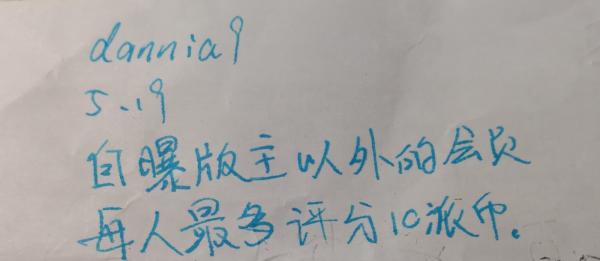 dannia9
5.19
自曝版主以外的会员
每人最多评分10派币。